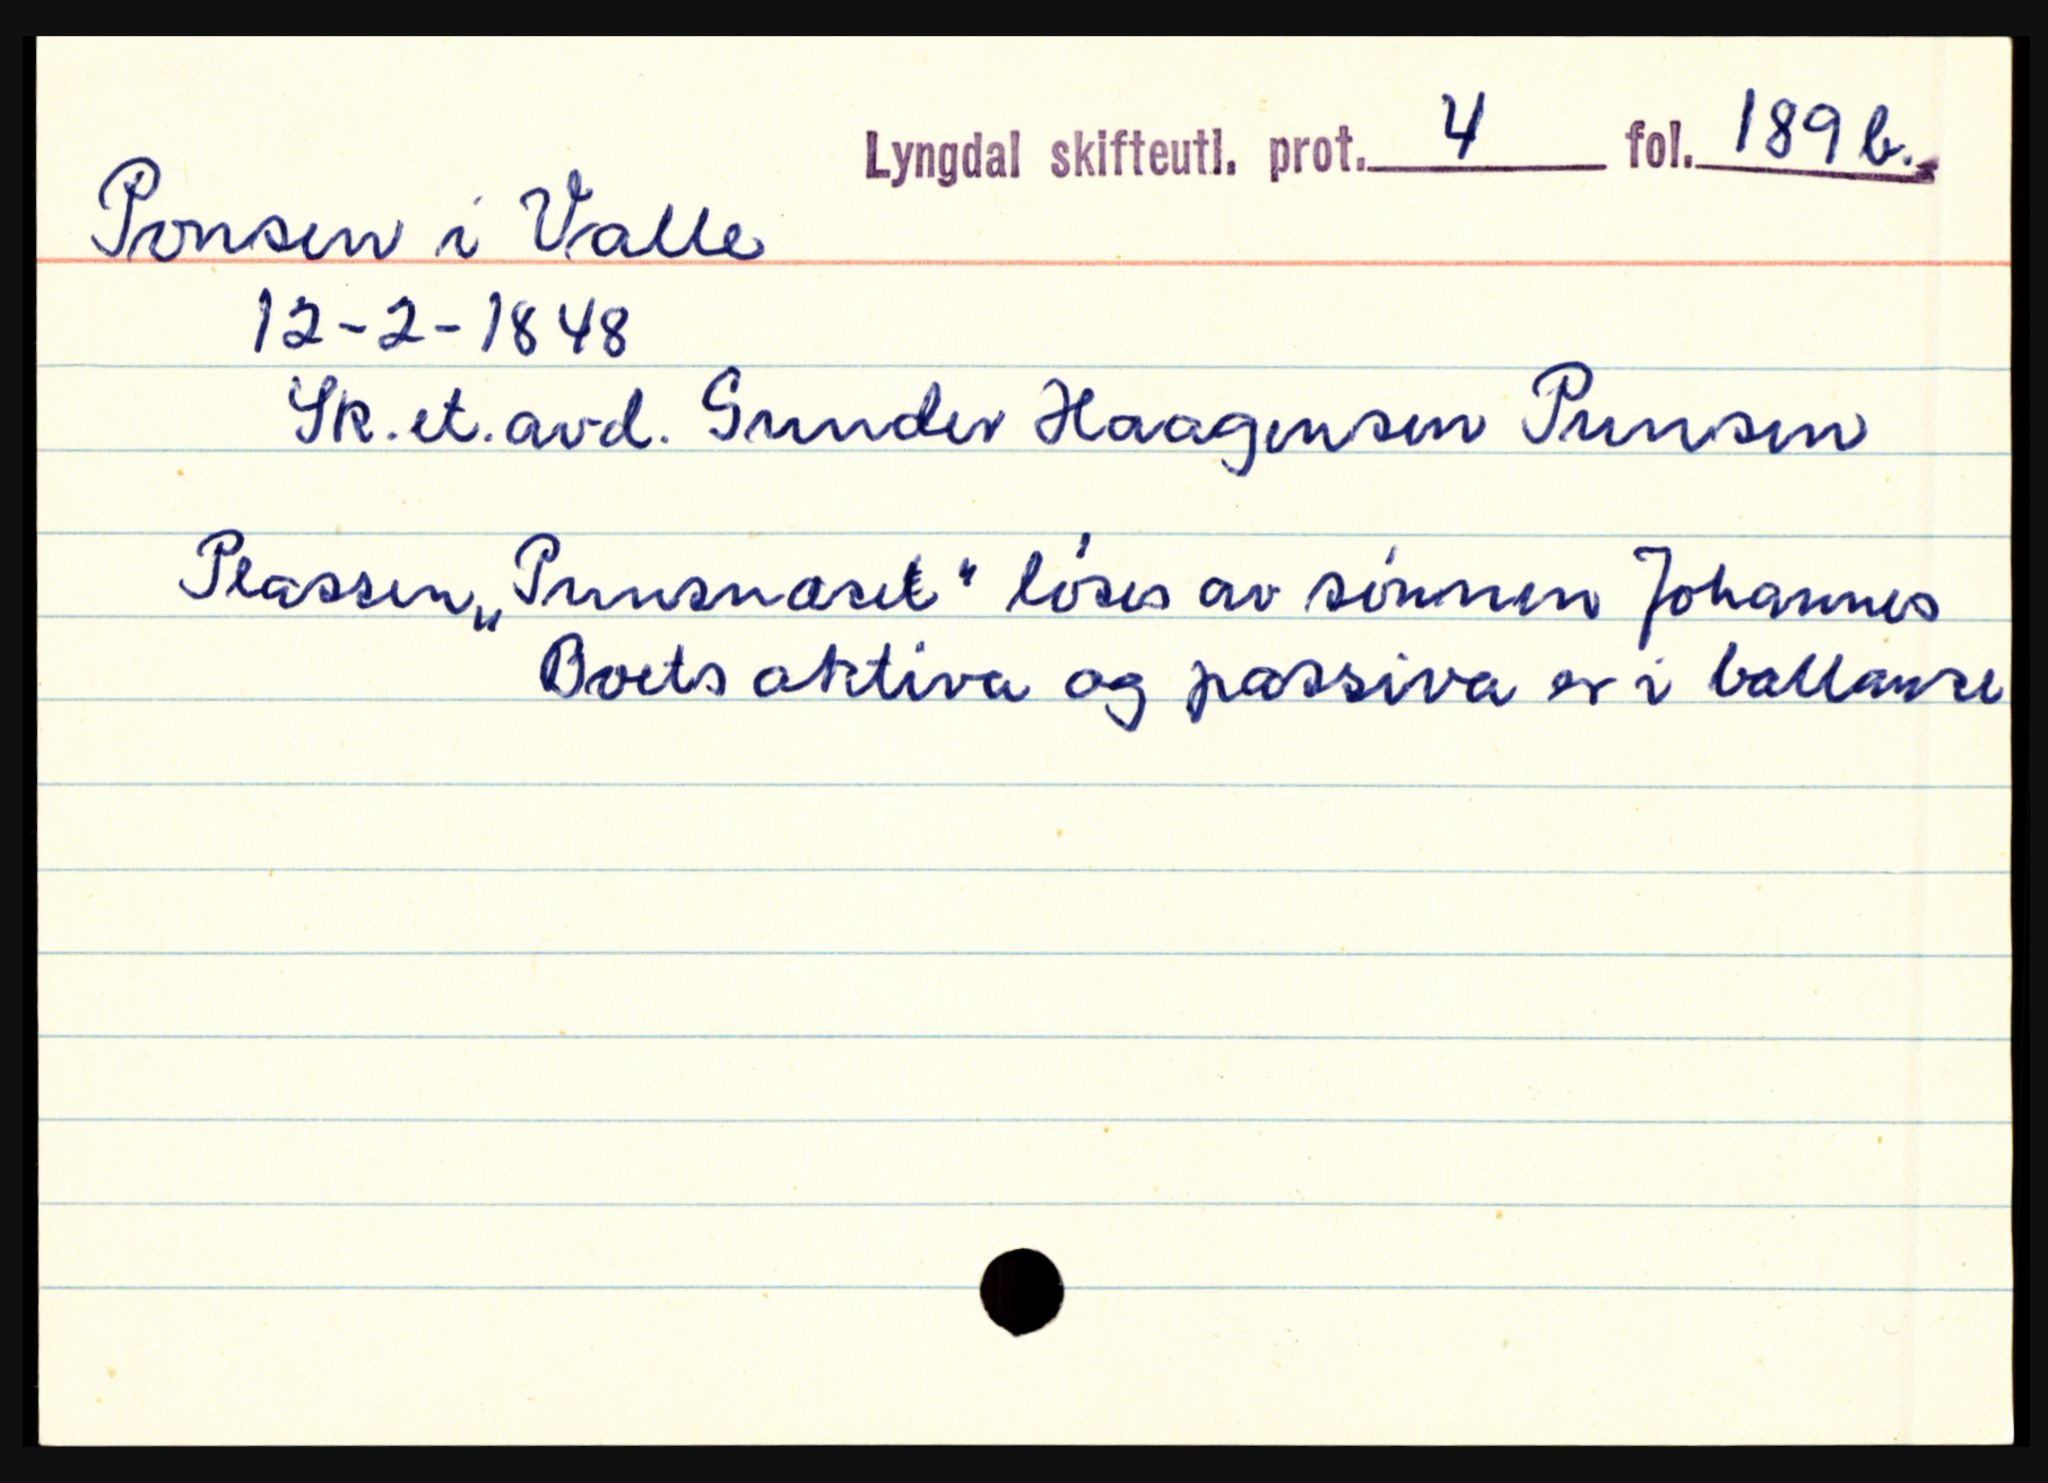 Lyngdal skifteutl. prot. 4 fol. 189 b.
Ponsen i Valle
12-2-1848
Sk. et. avd. Gunder Haagensen Punsen
Plassen „Punsnæset" løses av sønnen Johannes
Boets aktiva og passiva er i ballanse